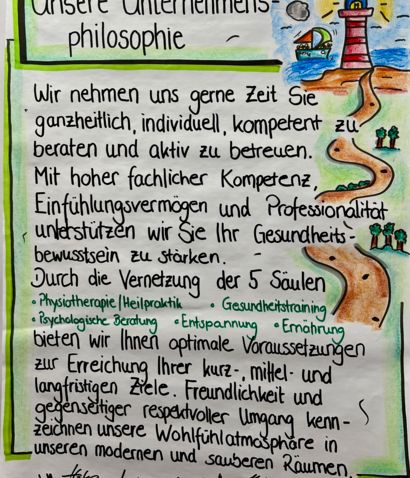 Unsere Unternehmens-
philosophie
Wir nehmen uns gerne Zeit Sie
ganzheitlich, individuell, kompetent zu
beraten und aktiv zu betreuen.
Mit hoher fachlicher Kompetenz,
Einfühlungsvermögen und Professionalität
unterstützen wir Sie Ihr Gesundheits-
bewusstsein zu stärken.
Durch die Vernetzung der 5 Säulen
• Physiotherapie/Heilpraktik • Gesundheitstraining
• Psychologische Beratung • Entspannung • Ernährung
bieten wir Ihnen optimale Voraussetzungen
zur Erreichung Ihrer kurz-, mittel- und
langfristigen Ziele. Freundlichkeit und
gegenseitiger respektvoller Umgang kenn-
zeichnen unsere Wohlfühlatmosphäre in
unseren modernen und sauberen Räumen.